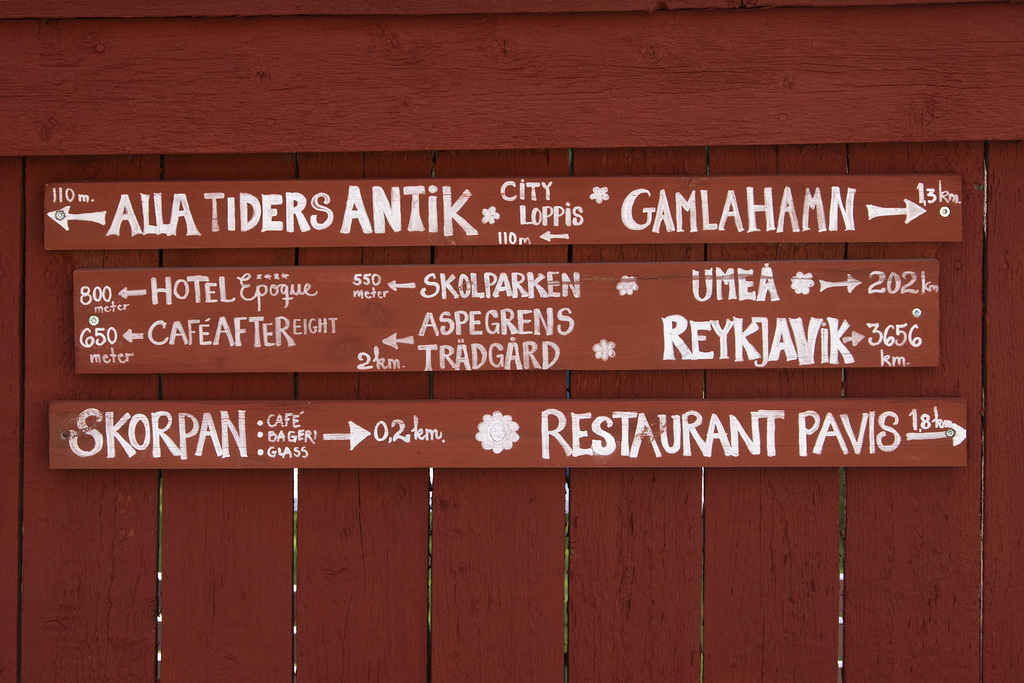 110 m. ALLA TIDERS ANTIK CITY GAMLAHAMN 1,3 km.
LOPPIS
110 m
800 meter HOTEL Epoque 550 meter SKOLPARKEN UMEÅ 202 km
650 meter CAFÉ AFTER EIGHT ASPEGRENS REYKJAVIK 3656 km.
2 km. TRÄDGÅRD
SKORPAN : CAFÉ 0,2 km. RESTAURANT PAVIS 1,8 km
BAGERI
GLASS